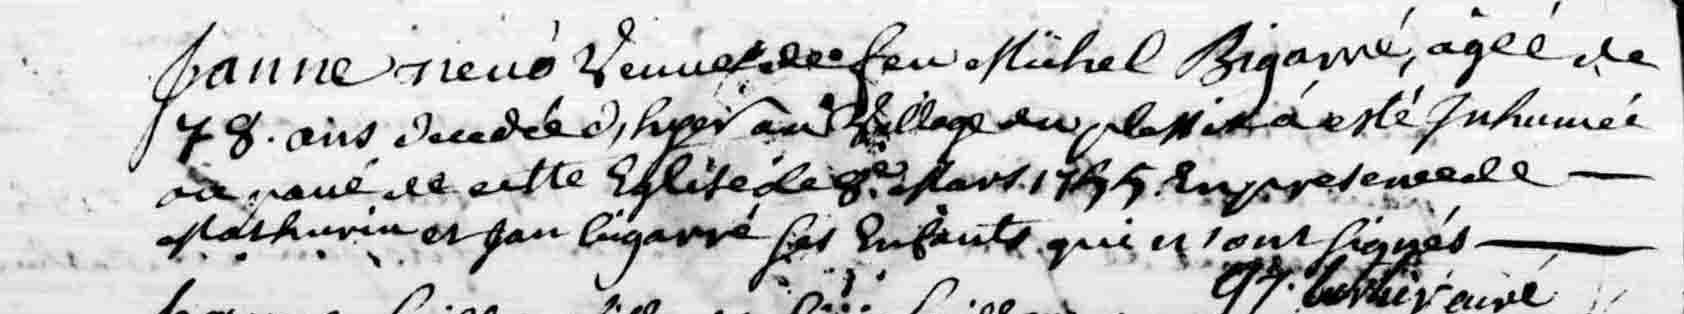 Janne nevo Veuve de feu Michel Bigarré, âgée de
78. ans decedée d'hyer au Village du plessix á esté Inhumée
au pavé de cette Eglise le 8e. Mars. 1755. En presence de
Mathurin et Jan bigarré ses Enfants qui n'ont signés
curé